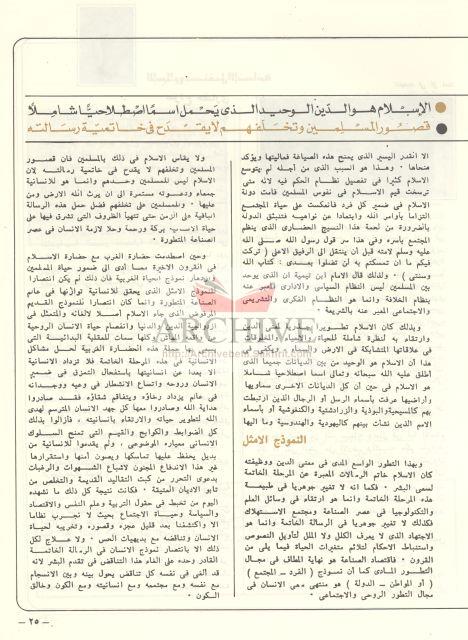 الإسلام هو الدين الوحيد الذي يحمل اسما اصطلاحيا شاملا
قصور المسلمين وتخلفهم لا يقدح في خاتمية رسالته
الا القدر اليسير الذي يمنح هذه الصياغة فعاليتها ويؤكد
منحاها ٠ وهذا هو السبب الذي من أجله لم يتوسع
الاسلام كثيرا في تفصيل نظام الحكم فيه لانه متى
ترسخت قيم الاسلام في نفوس المسلمين قامت دولة
الاسلام في ضمير كل فرد فانعكست على حياة المجتمع
التزاما بأوامر الله وابتعادا عن نواهيه فتنبثق الدولة
بالضرورة من لحمة هذا النسيج الحضاري الذي ينظم
المجتمع بأسره وفي هذا سر قول رسول الله صلى الله
عليه وسلم لامته قبل أن ينتقل الى الرفيق الاعلى ( تركت
فيكم ما ان تمسكتم به لن تضلوا بعدي : كتاب الله
وسنتي ) ٠ ولذلك قال الامام ابن تيمية ان الذي يوحد
بين المسلمين ليس النظام السياسي والاداري المعبر عنه
بنظام الخلافة وانما هو النظام الفكري والتشريعي
والاجتماعي المعبر عنه بالشريعة ٠
وبذلك كان الاسلام تطويرا
وارتقاء به لنظرة شاملة للحياة والاحياء والعلاقات
في علاقاتها المتشابكة في الارض والسماء ٠ ويكفي في
هذا أن الاسلام هو الوحيد من بين الديانات جميعا الذي
أطلق عليه الله سبحانه وتعالى اسما اصطلاحيا شاملا
هو الاسلام في حين أن كل الديانات الاخرى سماويها
وأراضيها عرفت بأسماء الرسل أو الرجال الذين ارتبطت
بهم كالمسيحية والبوذية والزرادشتية والكنفوشية أو بأسماء
الامم الذين نشأت بينهم كاليهودية والهندوسية وما اليها
النموذج الامثل
وبهذا التطور الواسع المدى في معنى الدين ووظيفته
كان الاسلام خاتم الرسالات المعبرة عن المرحلة الخاتمة
لسعي البشر ٠ فكما أنه لا تغير جوهريا في طبيعة
هذه المرحلة الخاتمة وانما هو ارتقاء في وسائل العلم
والتكنولوجيا في عصر الصناعة ومجتمع الاستهلاك
فكذلك لا تغير جوهريا في الرسالة الخاتمة وانما هو
الاجتهاد الذي لا يعرف الكلل ولا الملل لتأويل النصوص
واستنباط الاحكام لتلائم متغيرات الحياة فيما يلي من
القرون ٠ فاقتصاد الصناعة هو نهاية المطاف في مجال
التطور المادي كما أن نموذج ( الفرد ــ المجتمع )
( أو المواطن ــ الدولة ) هو منتهى سعي الانسانى في
مجال التطور الروحي والاجتماعي ٠
ولا يقاس الاسلام في ذلك بالمسلمين فان قصور
المسلمين وتخلفهم لا يقدح في خاتمية رسالته لان
الاسلام ليس للمسلمين وحدهم وانما هو للانسانية
جمعاء ودعوته مستمرة الى أن يرث الله الارض ومن
عليها ٠ والمسلمين على تخلفهم فضل حمل هذه الرسالة
الباقية على الزمن حتى تتهيأ الظروف التي تشرق فيها على
حياة الانسان بركة ورحمة وحلا لازمة الانسان في عصر
الصناعة المتطورة ٠
وحين اصطدمت حضارة الغرب مع حضارة الاسلام
في القرون الاخيرة مما أدى الى ضمور حياة المسلمين
واندحار نموذج الحياة الغربية فان ذلك لم يكن انتصارا
للنموذج الامثل الذي يحقق للانسانية توازنها في عالم
الصناعة المتطورة وانما كان انتصارا للنموذج القديم
المرفوض الذي جاء الاسلام أصلا لالغائه والمتمثل في
ازدواجية الدين والدنيا وانفصام حياة الانسان الروحية
سمات للعقلية البدائية التي
هذه الحضارة الغربية لحل مشاكل
الانسانية في هذه المرحلة الخاتمة فلا تزداد الانسانية
الا بعدا عن انسانيتها باستفحال التمزق في ضمير
الانسان وروحه واتساع الانشطار في وعيه ووجدانه
في عالم يزداد رخاؤه ويتفاقم شقاؤه فقد صادروا
هداية الله وصادروا معها كل جهد الانسان المترسم لهدى
الله لتطوير حياته والارتقاء بانسانيته ، فأزالوا بذلك
كل الضوابط والكوابح والقيم التي تمنح السلوك
الانساني معياره الموضوعي ، ولم يقدموا للانسانية من
بديل يحفظ عليها تماسكها ويصون أمنها واستقرارها
غير هذا الاندفاع المجنون لاشباع الشهوات والرغبات
بدعوى التحرر من كبت التقاليد القديمة والتخلص من
تابو الاديان العتيقة ٠ فكانت نتيجة كل ذلك ما نشهده
اليوم من تخبط في حقول التربية وعلم النفس والاقتصاد
والسياسة وحياة الاجتماع بحيث لا نجرب نظاما
الا واكتشفنا بعد قليل عجزه وقصوره وتخريبه لحياة
الانسان وتناقضه مع بديهيات الحس ٠ ولا علاج لكل
ذلك الا بانتصار نموذج الانسان في الرسالة الخاتمة
القادر وحده على الغاء هذا التناقض في تقدم البشر لانه
قد ألغى في نفسه كل تناقض يحول بينه وبين الانسجام
مع نفسه ومع مجتمعه ومع انسانيته ومع الكون وخالق
الكون ٠
ARCHIVE
http://Archivebeta.Sakhrit.com
ــ ٢٥ ــ